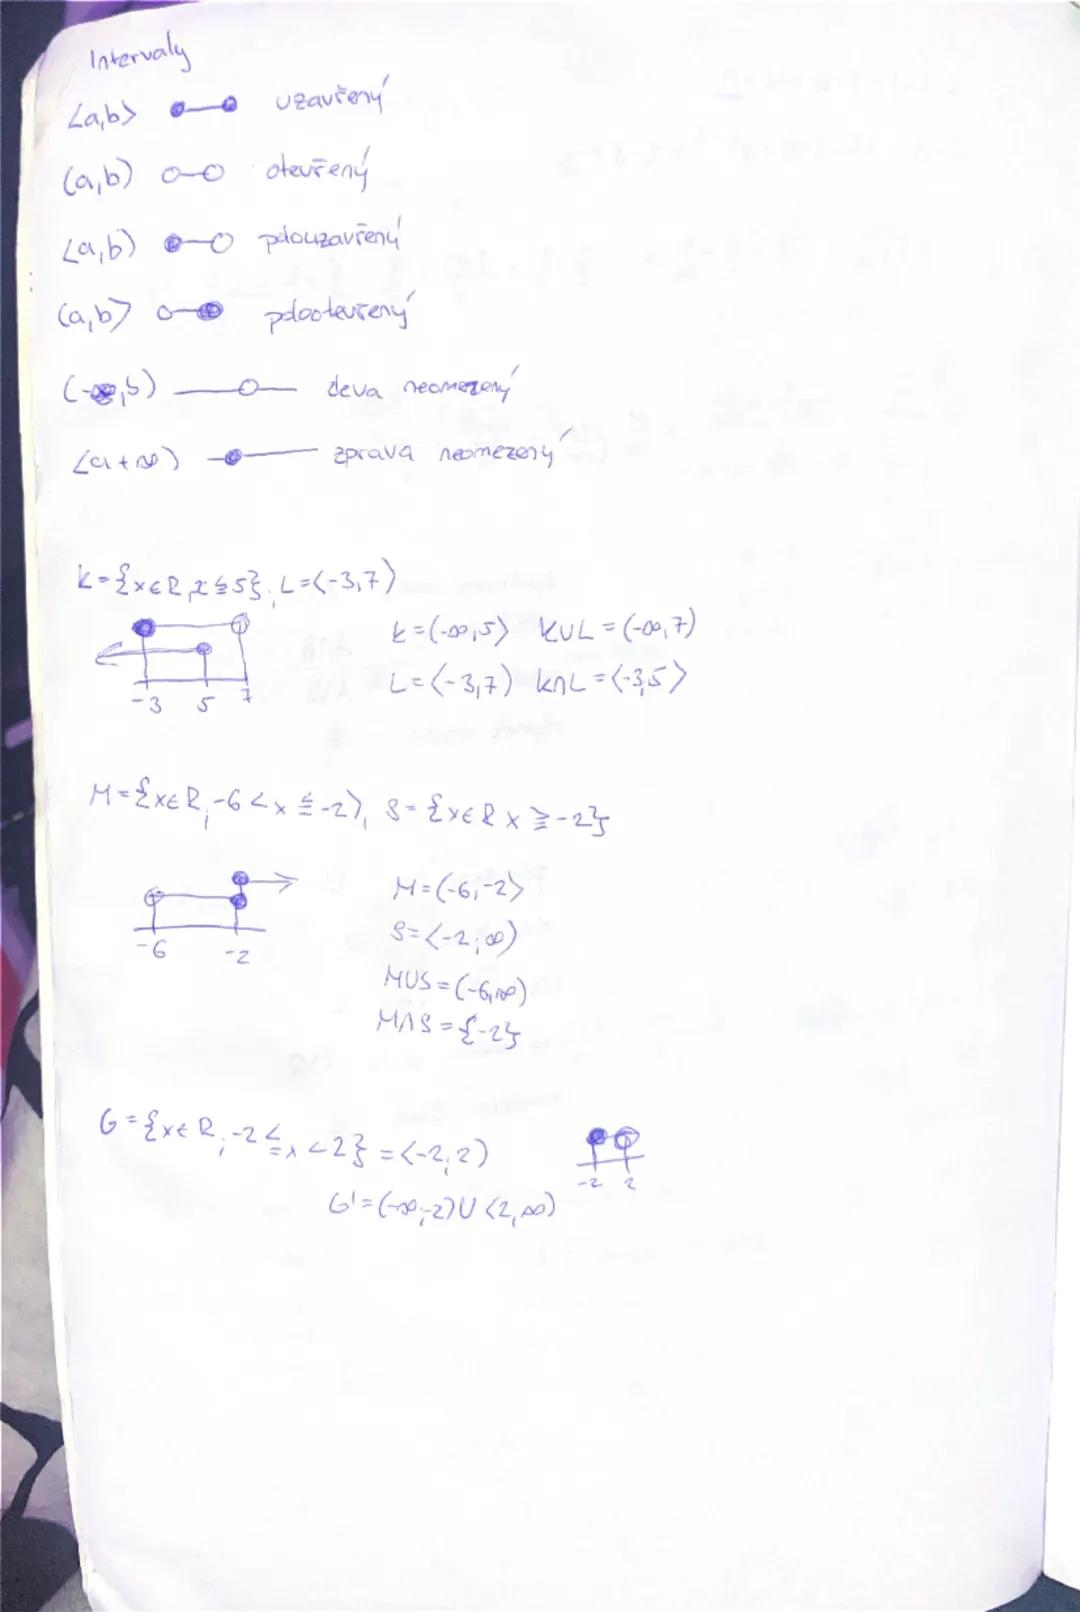 Intervaly
<a,b> uzavřený
(a,b) otevřený
<a,b) pdouzavřený
(a,b> pdootevřený
(-∞,b) deva neomezený
<a+∞) zprava neomezený
K={x∈R,x≦5}, L=<-3,7)
K=(-∞,5> KUL=(-∞,7)
-3 5 7 L=<-3,7) K∩L=<-3,5>
M={x∈R;-6<x≦-2), S={x∈R x≧-2}
M=(-6,-2>
-6 -2 S=<-2;∞)
MUS=(-6,∞)
M∩S={-2}
G={x∈R;-2≦x<2}=<-2,2)
-2 2
G'=(-∞;-2)U<2,∞)